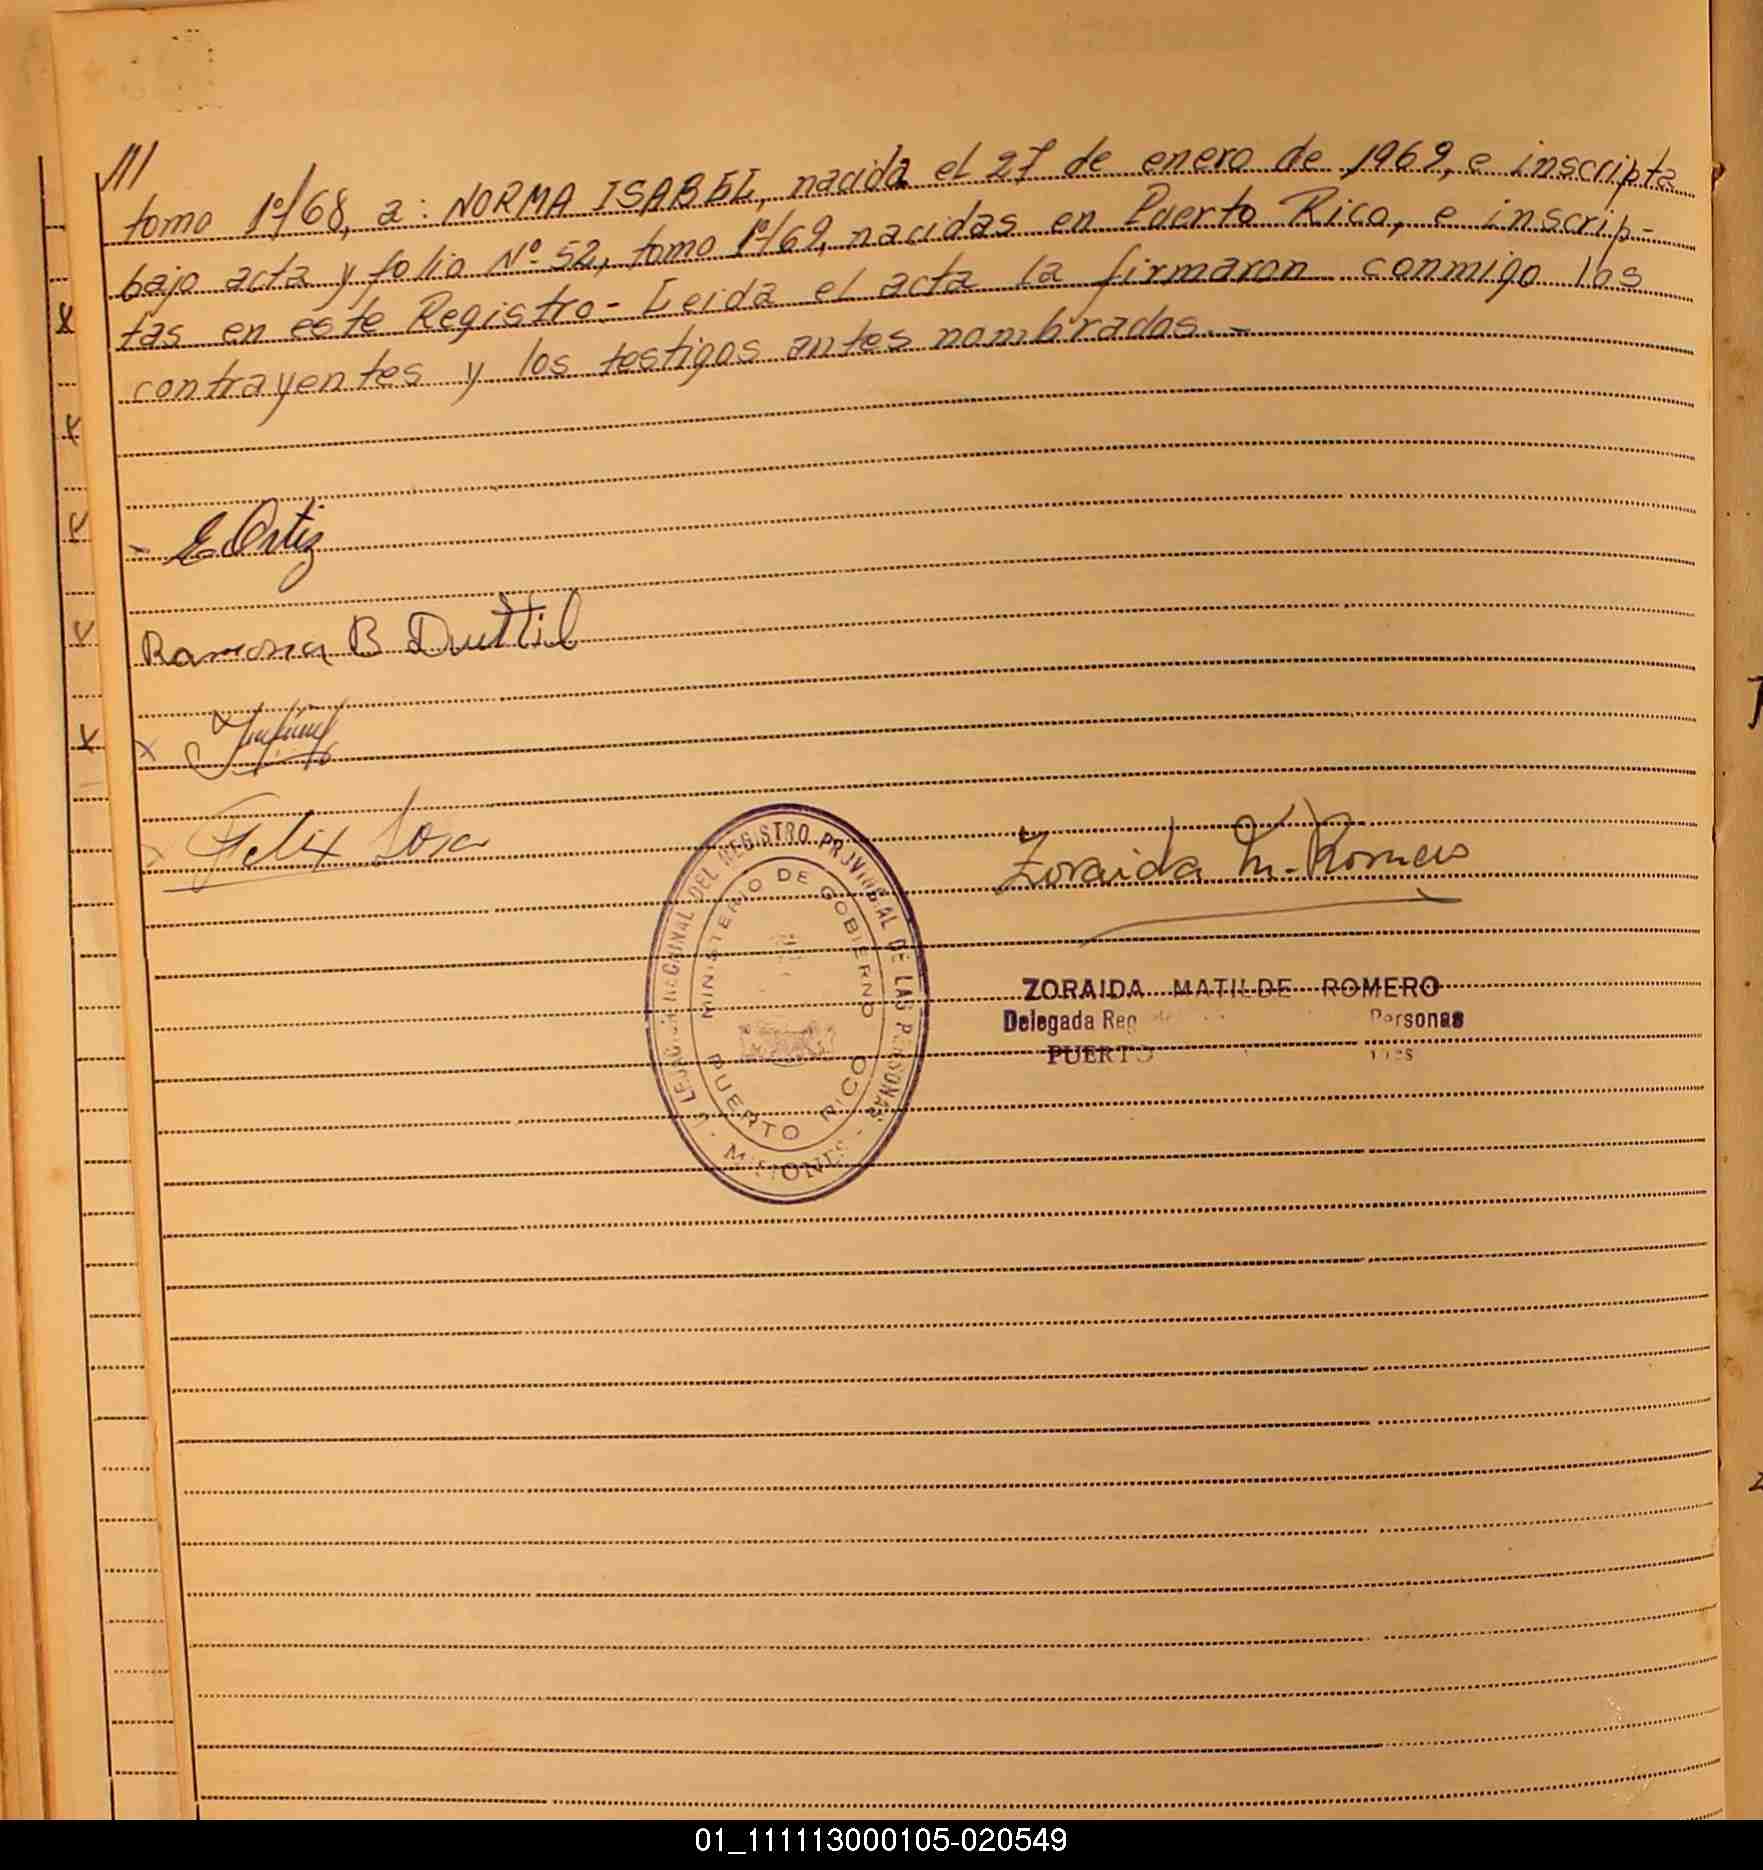 ///
tomo 1º/68, a: NORMA ISABEL, nacida el 27 de enero de 1969, e inscripta
bajo acta y folio Nº 52, tomo 1º/69, nacidas en Puerto Rico, e inscrip-
tas en éste Registro- Leida el acta la firmaron conmigo los
contrayentes y los testigos antes nombrados.-
E. Ortiz
Ramona B Duttil
Felix Sosa
Zoraida M. Romero
DEL REGISTRO PROVINCIAL DE LAS PERSONAS
MINISTERIO DE GOBIERNO
PUERTO RICO
- MISIONES -
ZORAIDA MATILDE ROMERO
Delegada Reg Personas
PUERTO
01_111113000105-020549